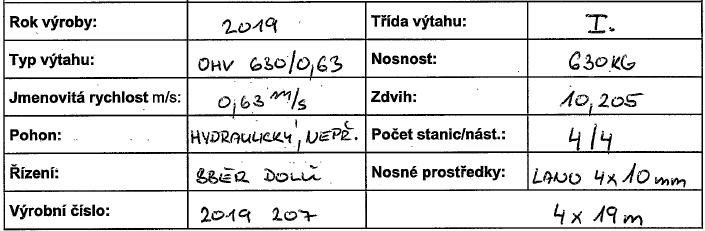 Rok výroby: 2019 Třída výtahu: I.
Typ výtahu: OHV 630/0,63 Nosnost: 630KG
Jmenovitá rychlost m/s: 0,63 m/s Zdvih: 10,205
Pohon: HYDRAULICKÝ, NEPŘ. Počet stanic/nást.: 4/4
Řízení: SBĚR DOLŮ Nosné prostředky: LANO 4x10mm
Výrobní číslo: 2019 207 4x19m